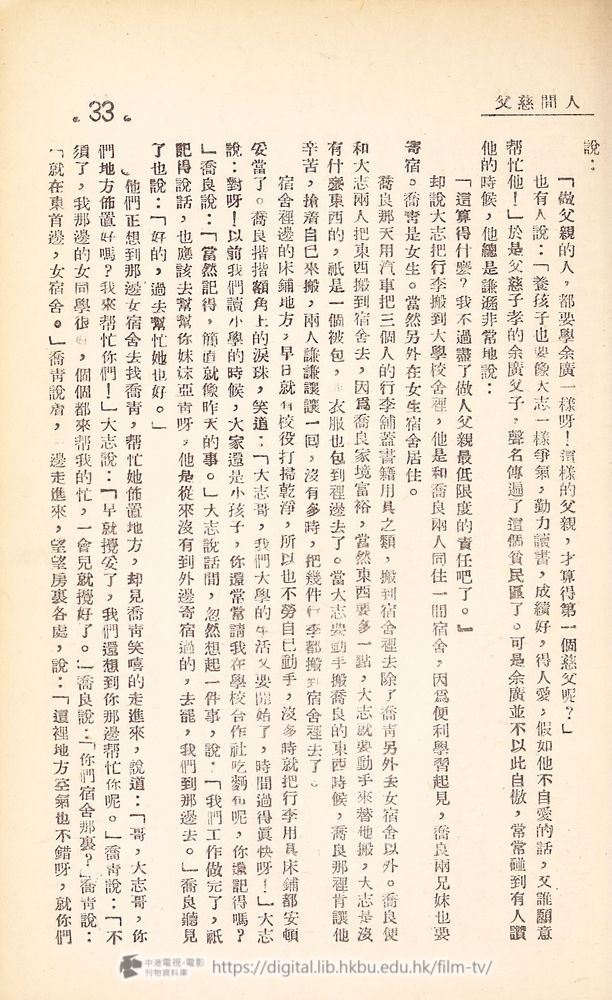 人間慈父
33
說：
「做父親的人，都要學余廣一樣呀！這樣的父親，才算得第一個慈父呢？」
也有人說：「養孩子也要像大志一樣爭氣，勤力讀書，成績好，得人愛，假如他不自愛的話，又誰願意
幫忙他！」於是父慈子孝的余廣父子，聲名傳遍了這個貧民區了。可是余廣並不以此自傲，常常碰到有人讚
他的時候，他總是謙遜非常地說：
「這算得什麼？我不過盡了做人父親最低限度的責任吧了。」
却說大志把行李搬到大學校舍裡，他是和喬良兩人同住一間宿舍，因爲便利學習起見，喬良兩兄妹也要
寄宿。喬靑是女生。當然另外在女生宿舍居住。
喬良那天用汽車把三個人的行李舖蓋書籍用具之類，搬到宿舍裡去除了喬靑另外去女宿舍以外。喬良便
和大志兩人把東西搬到宿舍去，因爲喬良家境富裕，當然東西要多一點，大志就要動手來替他搬，大志是沒
有什麼東西的，祇是一個被包，衣服也包到裡邊去了。當大志要動手搬喬良的東西時候，喬良那裡肯讓他
辛苦，搶着自己來搬，兩人謙謙讓讓一回，沒有多時，把幾件行李都搬到宿舍裡去了。
宿舍裡邊的床鋪地方，早日就有校役打掃乾淨，所以也不勞自己動手，沒多時就把行李用具床鋪都安頓
妥當了。喬良揩揩額角上的淚珠，笑道：「大志哥，我們大學的生活又要開始了，時間過得眞快呀！」大志
說：對呀！以前我們讀小學的時候，大家還是小孩子，你還常常請我在學校合作社吃麵包呢，你還記得嗎？
」喬良說：「當然記得，簡直就像昨天的事。」大志說話間，忽然想起一件事，說：「我們工作做完了，祇
記得說話，也應該去幫幫你妹妹亞靑呀，他是從來沒有到外邊寄宿過的，去罷，我們到那邊去。」喬良聽見
了也說：「好的，過去幫忙她也好。」
他們正想到那邊女宿舍去找喬靑，幫忙她佈置地方，却見喬靑笑嘻的走進來，說道：「哥，大志哥，你
們地方佈置好嗎？我來帮忙你們！」大志說：「早就攪妥了，我們還想到你那邊帮忙你呢。」喬靑說：「不
須了，我那邊的女同學很好，個個都來帮我的忙，一會兒就攪好了。」喬良說：「你們宿舍那裏？」喬靑說：
「就在東首邊，女宿舍。」喬靑說着，一邊走進來，望望房裏各處，說：「這裡地方空氣也不錯呀，就你們
中港電視・電影
刊物資料庫
https://digital.lib.hkbu.edu.hk/film-tv/